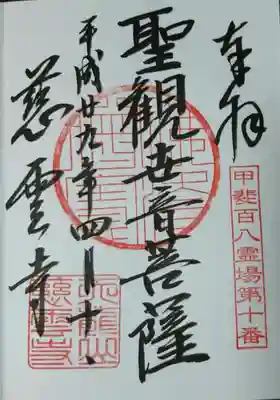 奉拝
甲斐百八霊場第十番
聖観世音菩薩
平成廿九年四月十
慈雲寺